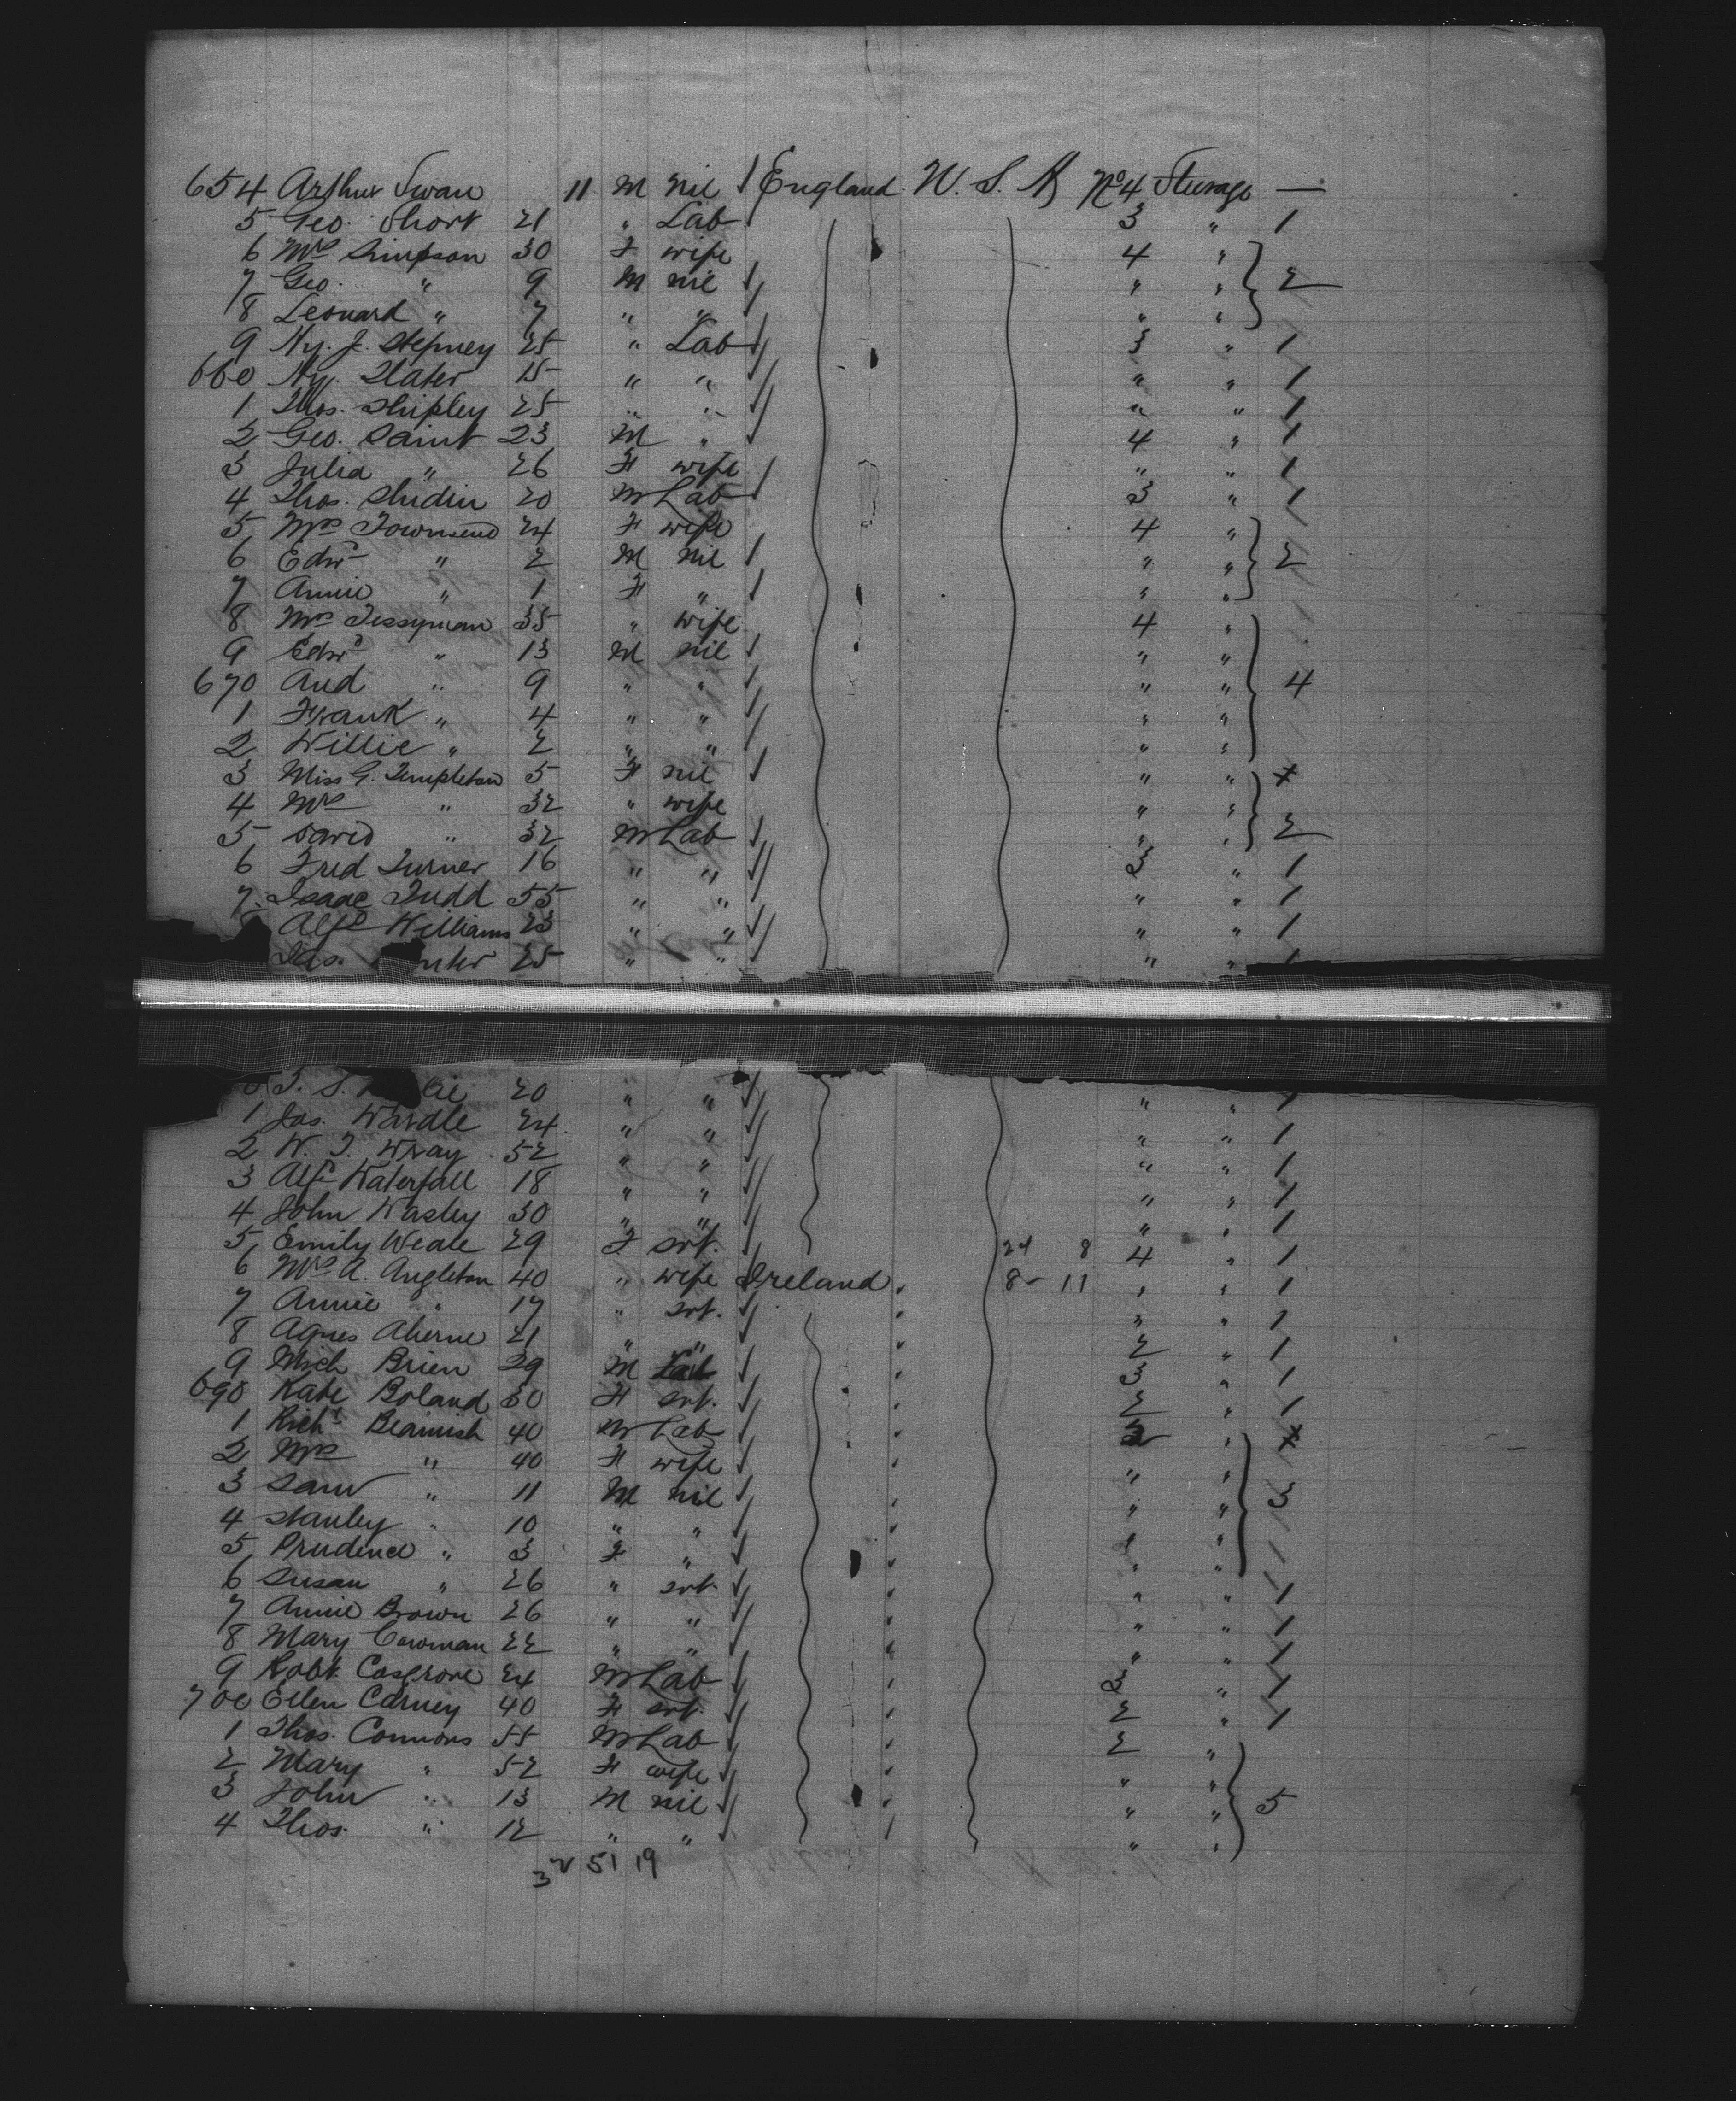 654 Arthur Swan 11 M nil England U. S. A No 4 Steerage —
5 Geo. Short 21 " Lab 3 " 1
6 Mrs Simpson 30 F wife 4 "
7 Geo. " 9 M nil " " 2
8 Leonard " 7 " " " "
9 Hy. J. Stepney 25 " Lab 3 " 1
660 Hy. Slater 15 " " " " 1
1 Thos. Shipley 25 " " " " 1
2 Geo. Saint 23 M " 4 " 1
3 Julia " 26 F wife " " 1
4 Thos. 20 M Lab 3 " 1
5 Mrs Townsend 24 F wife 4 "
6 Edwd " 2 M nil " " 2
7 Annie " 1 F " " "
8 Mrs Tessyman 35 " wife 4 "
9 Edwd " 13 M nil " "
670 And " 9 " " " " 4
1 Frank " 4 " " " "
2 Willie " 2 " " " "
3 Miss G. Templeton 5 F nil " "
4 Mrs " 32 " wife " "
5 David " 32 M Lab " " 2
6 Fred Turner 16 " " 3 " 1
7 Isaac Judd 55 " " " " 1
Alfd Williams 23 " " " " 1
25 " " " " 1
T. S. 20 " " " " 1
1 Jas. Wardle 24 " " " " 1
2 W. T. Wray 52 " " " " 1
3 Alfd Waterfall 18 " " " " 1
4 John Wasley 30 " " " " 1
5 Emily Weale 29 F svt. 24 8 4 " 1
6 Mrs A. Angleton 40 " wife Ireland 8- 11 " " 1
7 Annie " 17 " svt. " " 1
8 Agnes Aherne 21 " " 2 " 1
9 Mich Brien 29 M Lab 3 " 1
690 Kate Boland 30 F svt. 2 " 1
1 Richd Beamish 40 M Lab 2 "
2 Mrs " 40 F wife " "
3 Saml " 11 M nil " " 3
4 Stanley " 10 " " " "
5 Prudence " 3 F " " "
6 Susan " 26 " svt. " " 1
7 Annie Brown 26 " " " " 1
8 Mary Cowman 22 " " " " 1
9 Robt. Cosgrove 24 M Lab 3 " 1
700 Ellen Carney 40 F svt. 2 " 1
1 Thos. Connors 55 M Lab 2 "
2 Mary " 52 F wife " "
3 John " 13 M nil " " 5
4 Thos. " 12 " " " "
32 51 19